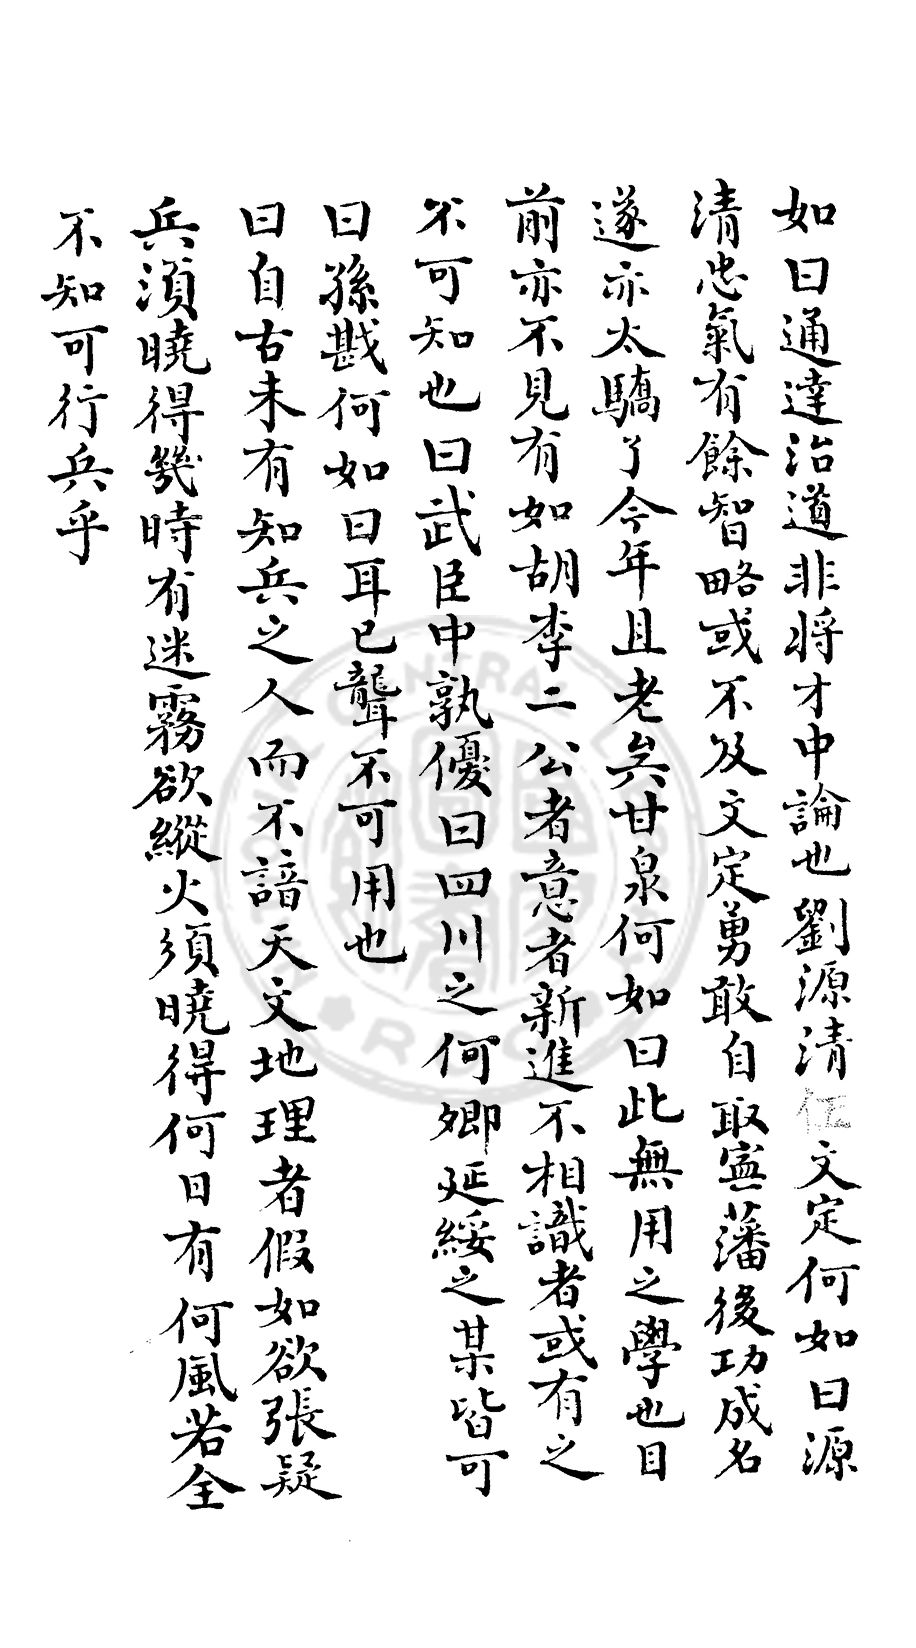 如曰通達治道非將才中論也劉源清伍文定何如曰源
清忠氣有餘智略或不及文定勇敢自取寧藩後功成名
遂亦太驕了今年且老矣甘泉何如曰此無用之學也目
前亦不見有如胡李二公者意者新進不相識者或有之
不可知也曰武臣中孰優曰四川之何卿延綏之某皆可
曰孫戡何如曰耳已聾不可用也
曰自古未有知兵之人而不諳天文地理者假如欲張疑
兵須曉得幾時有迷霧欲縱火須曉得何日有何風若全
不知可行兵乎
NATIONAL CENTRAL LIBRARY
R.O.C